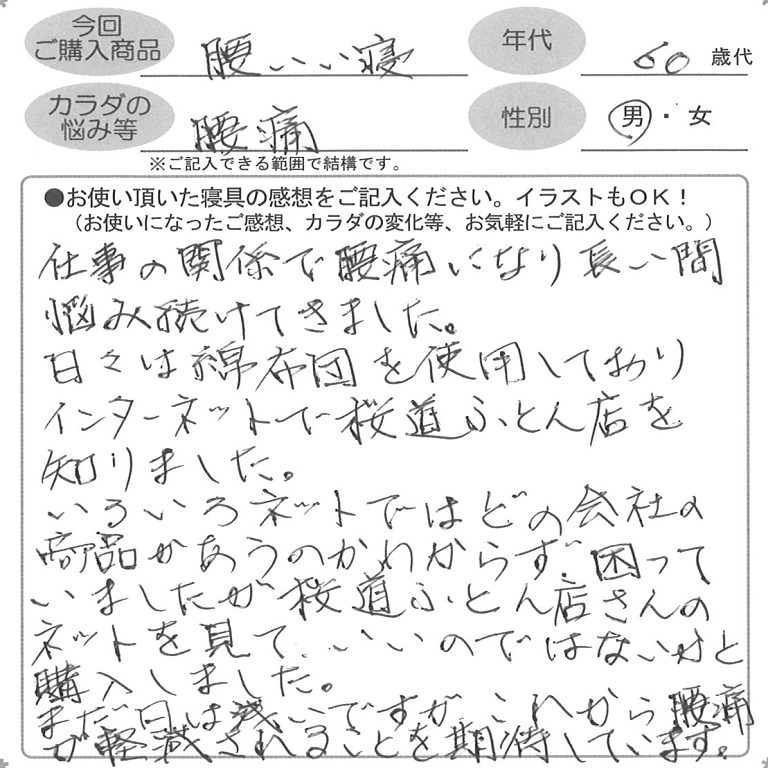 今回
ご購入商品
腰いい寝
年代
60 歳代
カラダの
悩み等
腰痛
性別
男・女
※ご記入できる範囲で結構です。
●お使い頂いた寝具の感想をご記入ください。イラストもOK！
（お使いになったご感想、カラダの変化等、お気軽にご記入ください。）
仕事の関係で腰痛になり長い間
悩み続けてきました。
日々は綿布団を使用しており
インターネットで桜道ふとん店を
知りました。
いろいろネットではどの会社の
商品があうのかわからず、困って
いましたが桜道ふとん店さんの
ネットを見て、いいのではないかと
購入しました。
まだ日は浅いですが、これから腰痛
が軽減されることを期待しています。